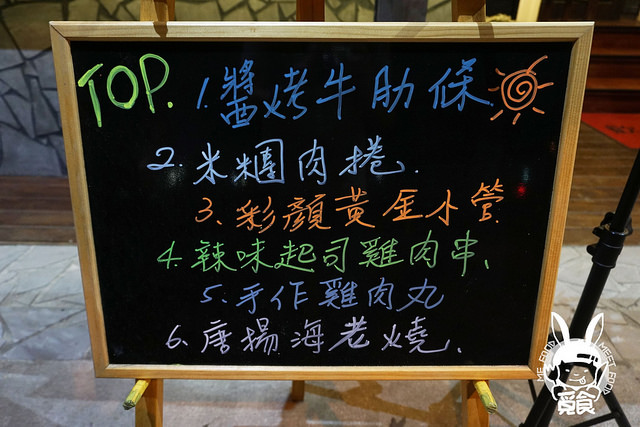 TOP. 1.醬烤牛肋條
2. 米糰肉捲.
3. 彩顏黃金小管.
4. 辣味起司雞肉串、
5. 手作雞肉丸
6. 唐揚海老燒.
ME FOOD MEET FOOD
覓食